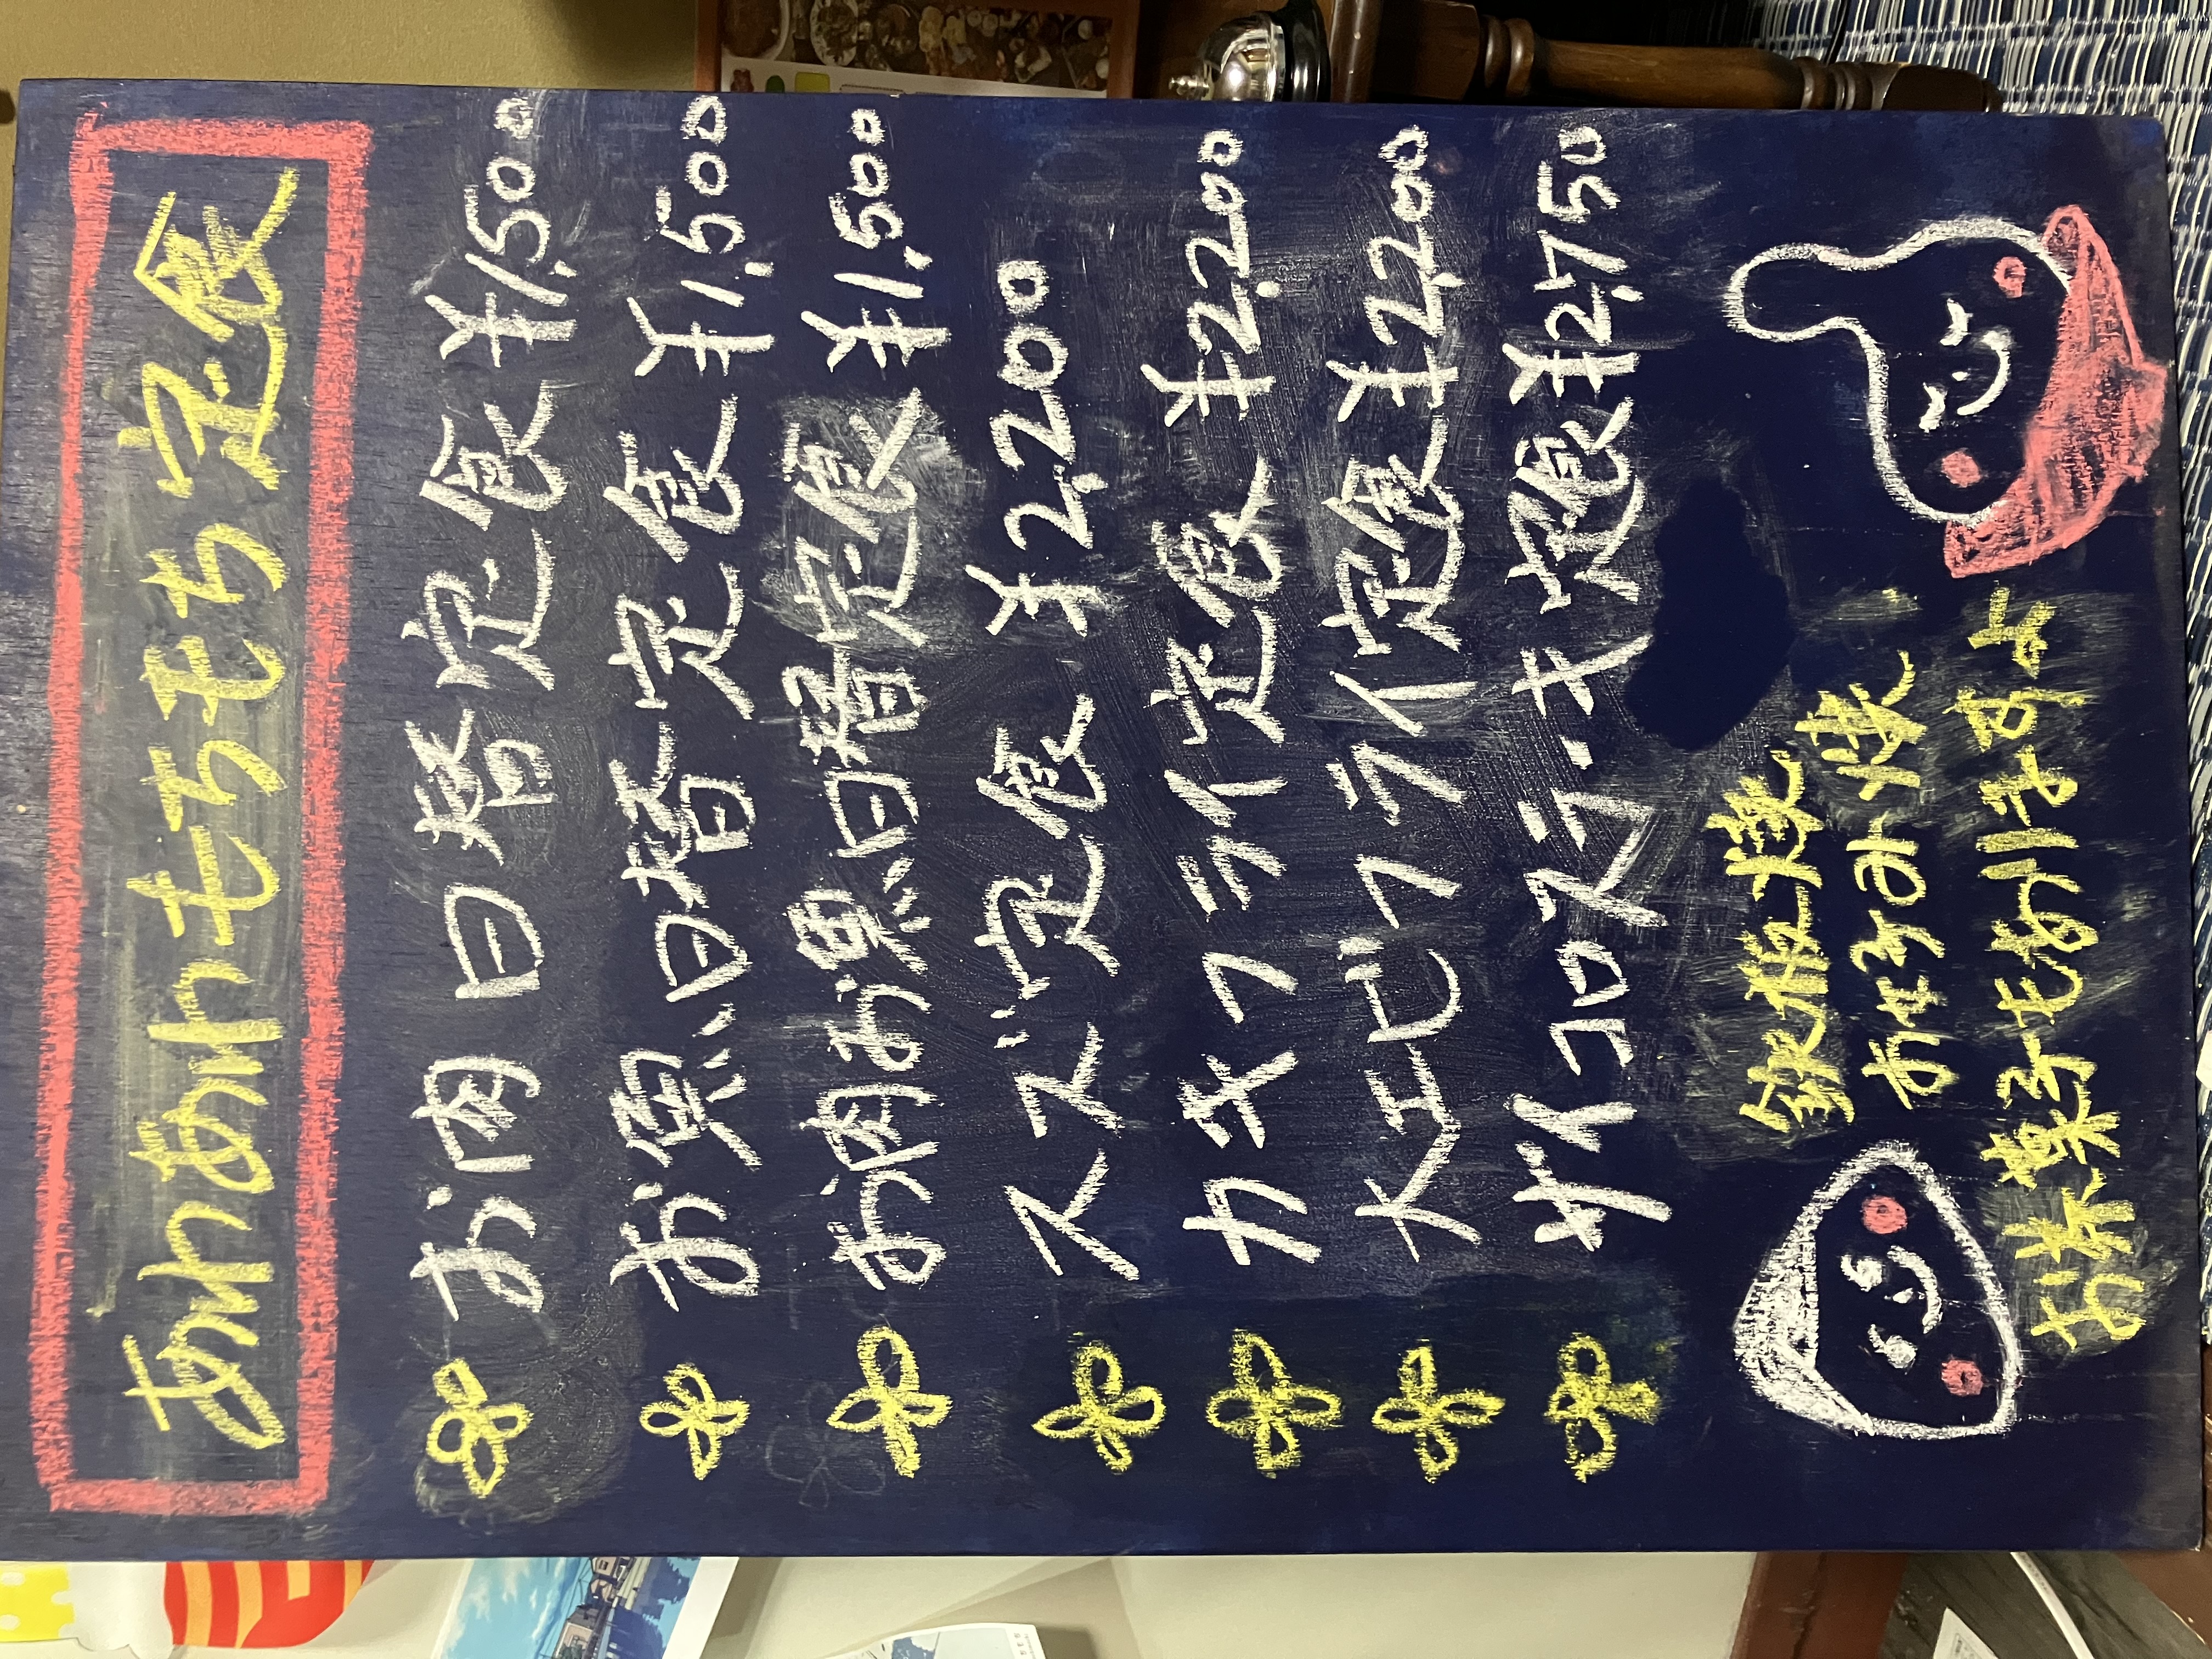 あれあれもちもち定食
お肉日替定食 ¥1,500
お魚日替定食 ¥1,500
お肉お魚日替定食 ¥1,500
スズ定食 ¥2,200
カキフライ定食 ¥2,200
大エビフライ定食 ¥2,200
サイコロステーキ定食 ¥2,750
鉄板焼
お好み焼
お茶菓子もありますよ